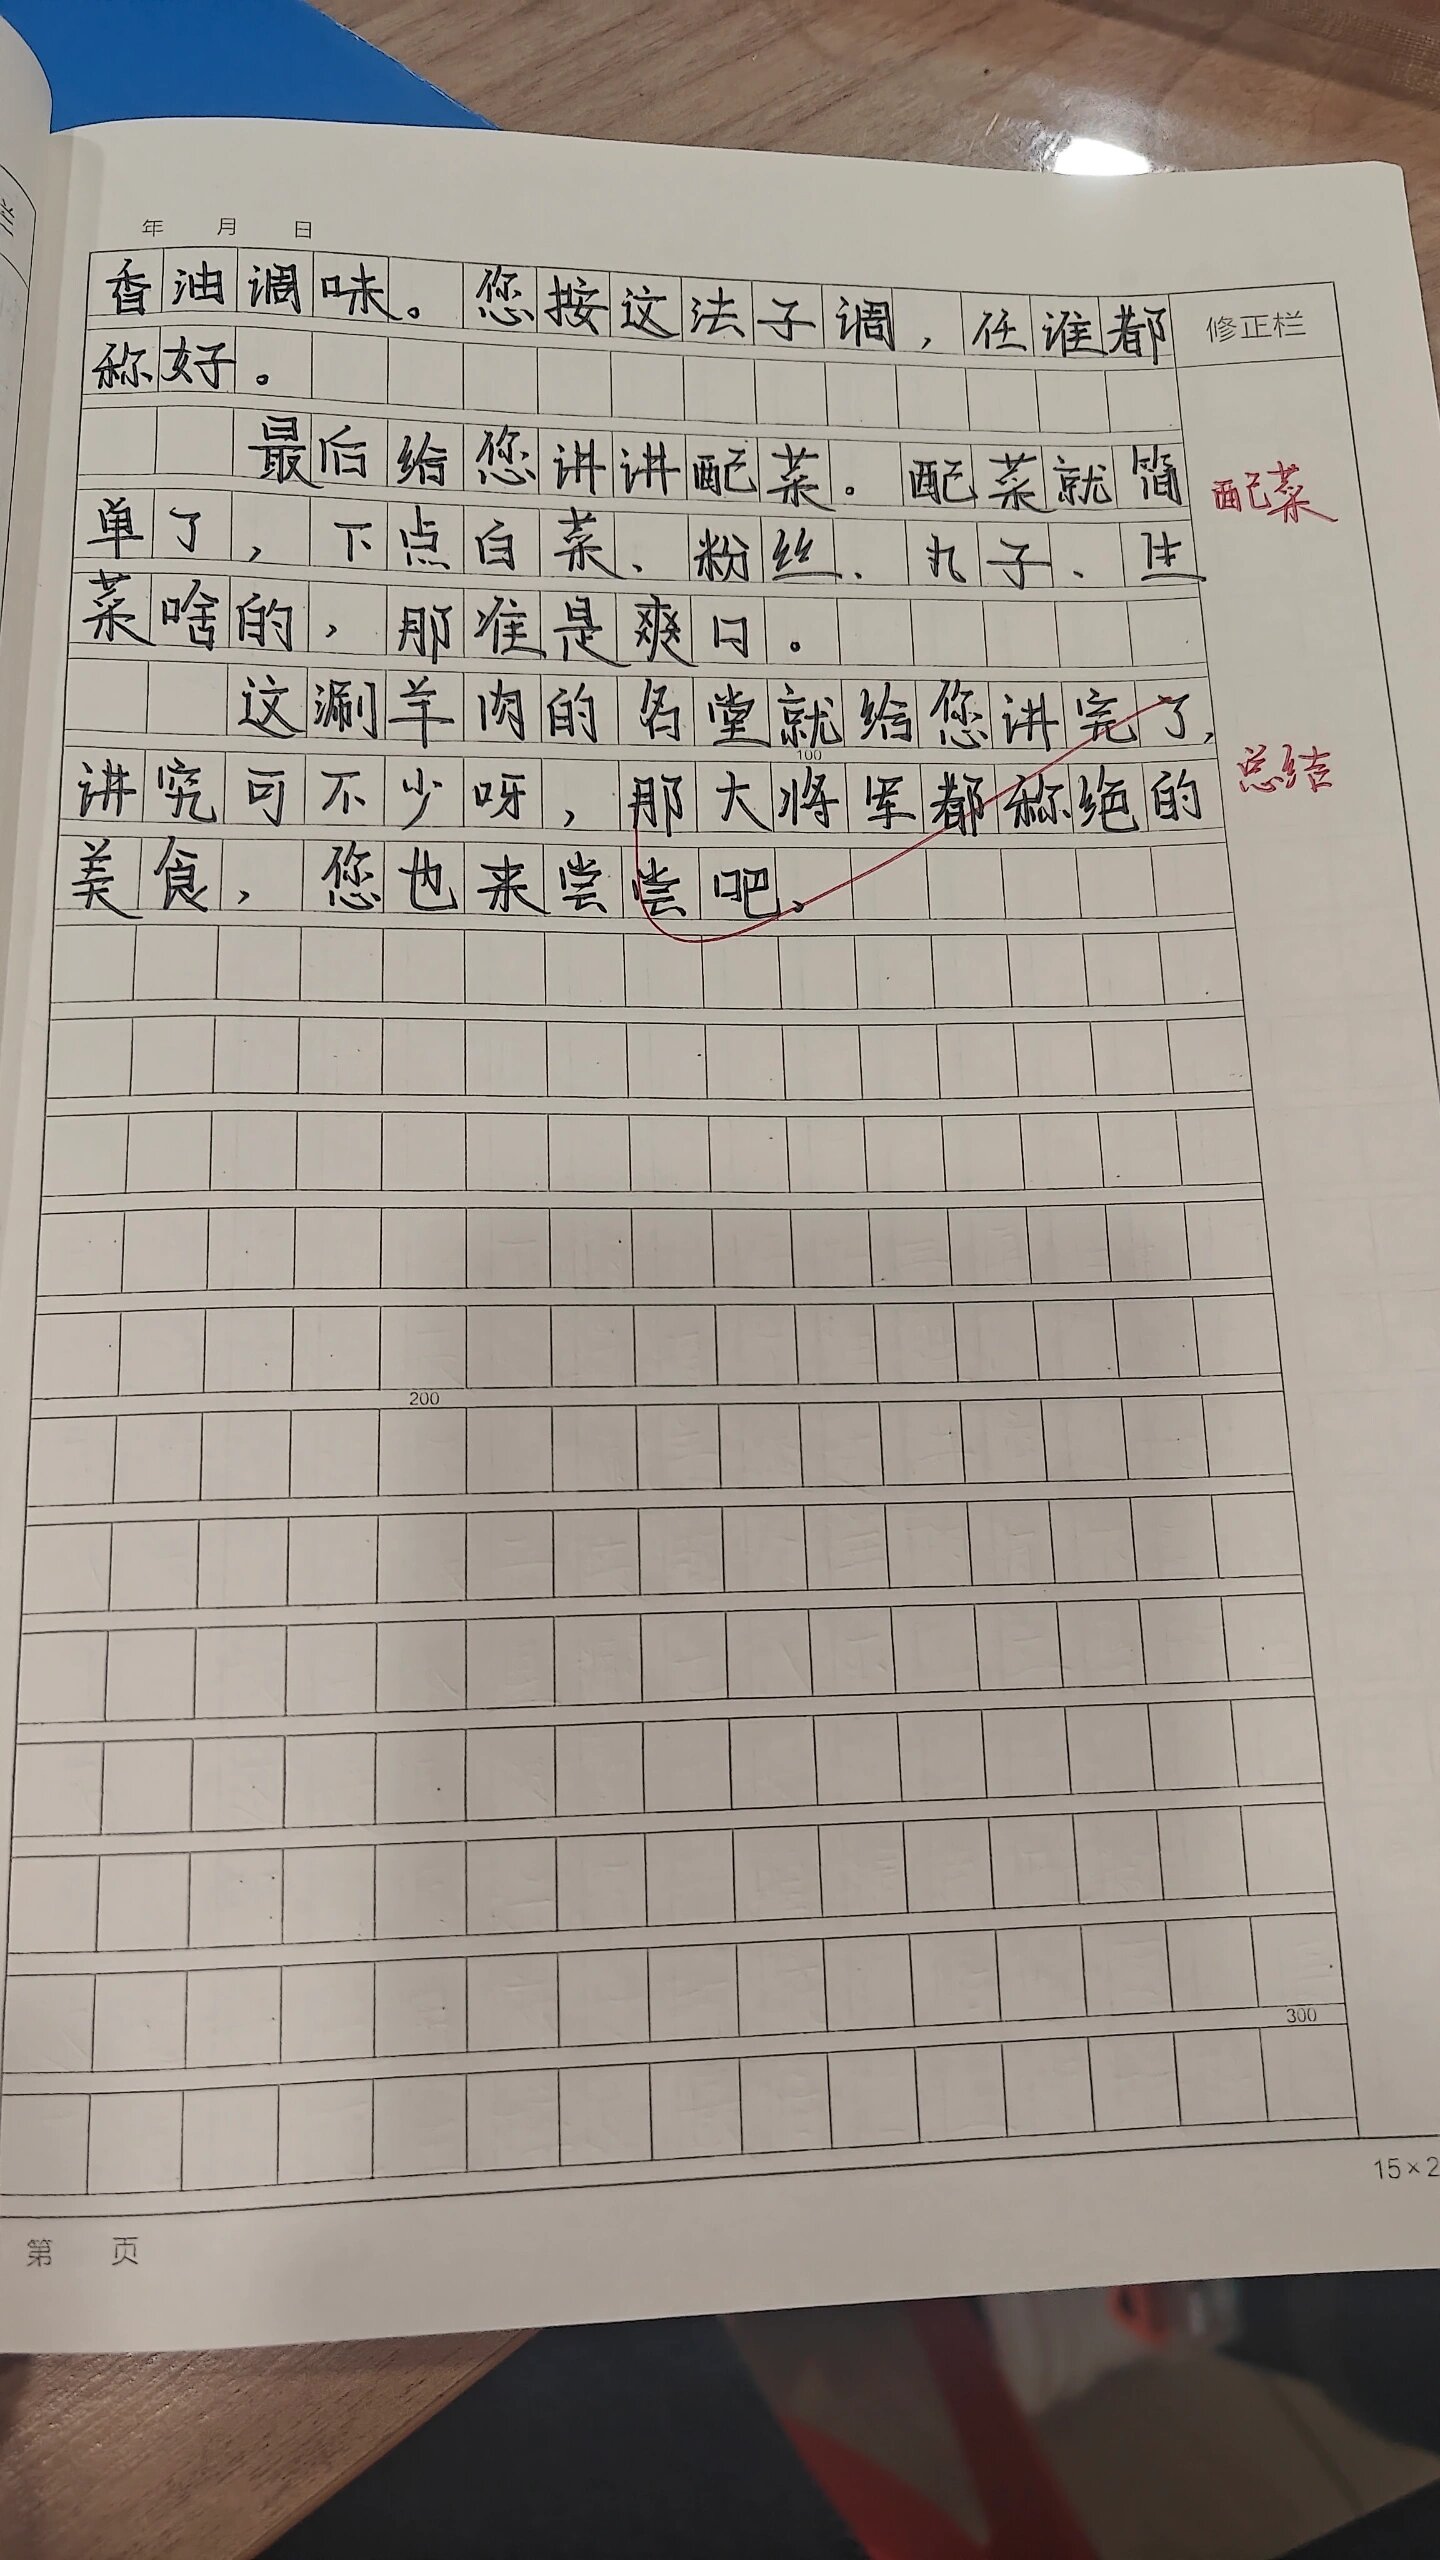 年 月 日
香油调味。您按这法子调,任谁都
修正栏
称好。
最后给您讲讲配菜。配菜就简
配菜
单了,下点白菜、粉丝、丸子、生
菜啥的,那准是爽口。
这涮羊肉的名堂就给您讲完了,
100
讲究可不少呀,那大将军都称绝的
总结
美食,您也来尝尝吧、
200
300
15×2
第 页